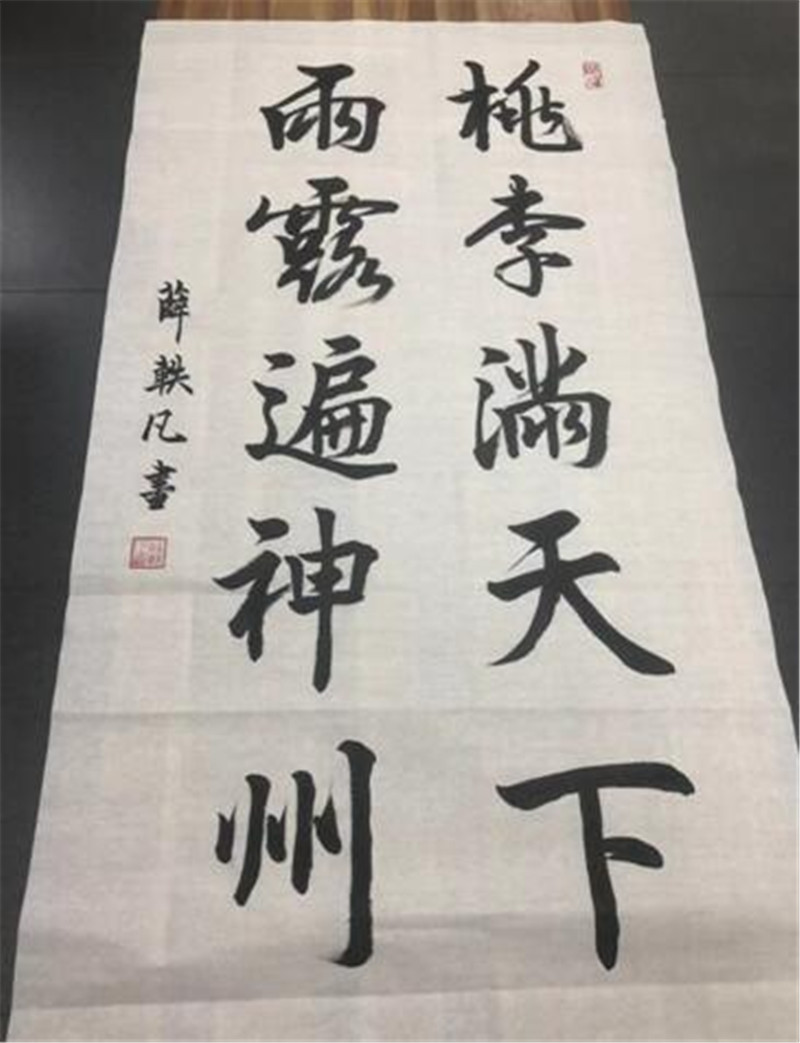 桃李滿天下
雨露遍神州
薛軼凡書